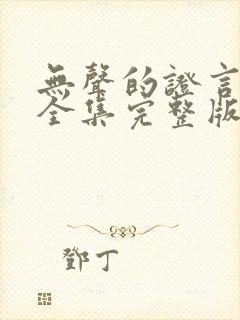 無聲的證言
全集完整版
鄧丁